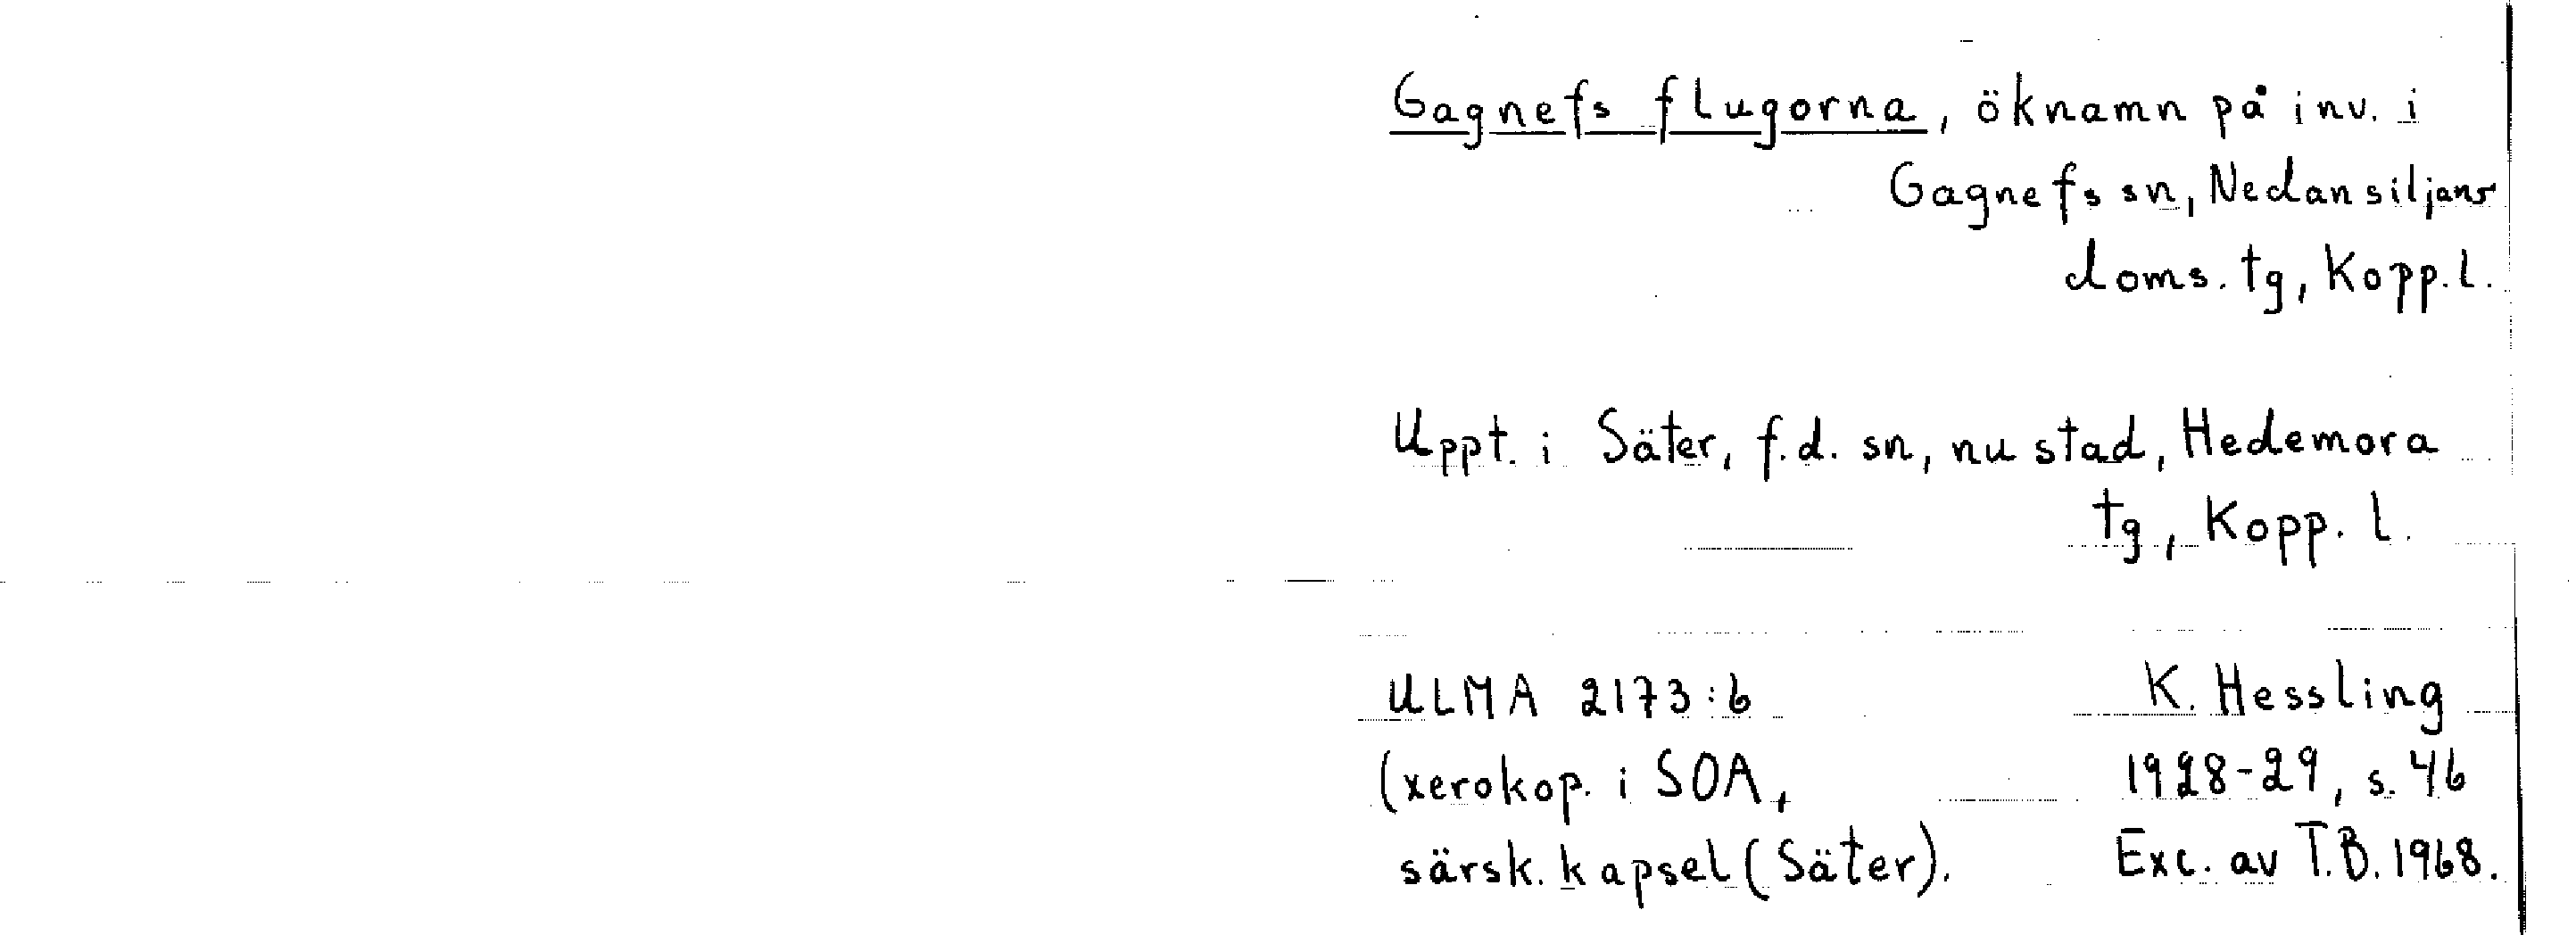 Gagnefs flugorna, öknamn på inv. i
Gagnefs sn, Nedansiljans
doms. tg, Kopp. l.
Uppt. i Säter, f.d. sn, nu stad, Hedemora
tg, Kopp. l.
ULMA 2173:6 K. Hessling
(xerokop. i SOA, 1928-29, s. 46
särsk. kapsel (Säter). Exc. av T.B. 1968.